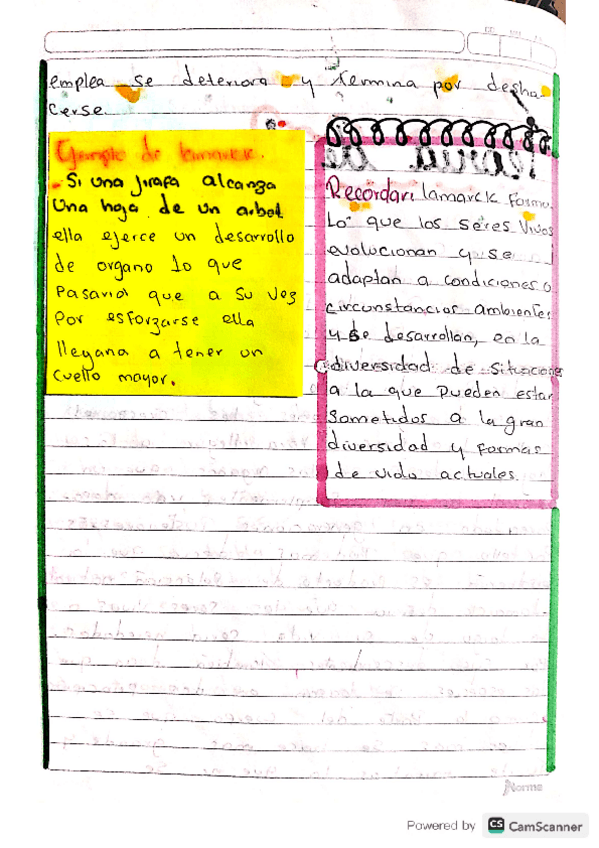 emplea se deteriora y termina por desha
cerse.
Ejemplo de lamarck.
Si una jirafa alcanza
una hoja de un arbol
ella ejerce un desarrollo
de organo lo que
pasaria que a su vez
por esforzarse ella
llegaria a tener un
cuello mayor.
Recordar: lamarck formu
Lo que los seres vivos
evolucionan y se
adaptan a condiciones o
circunstancias ambientes
y se desarrollan, en la
diversidad de situaciones
a la que pueden estar
sometidos a la gran
diversidad y formas
de vida actuales.
Norma
Powered by CS CamScanner